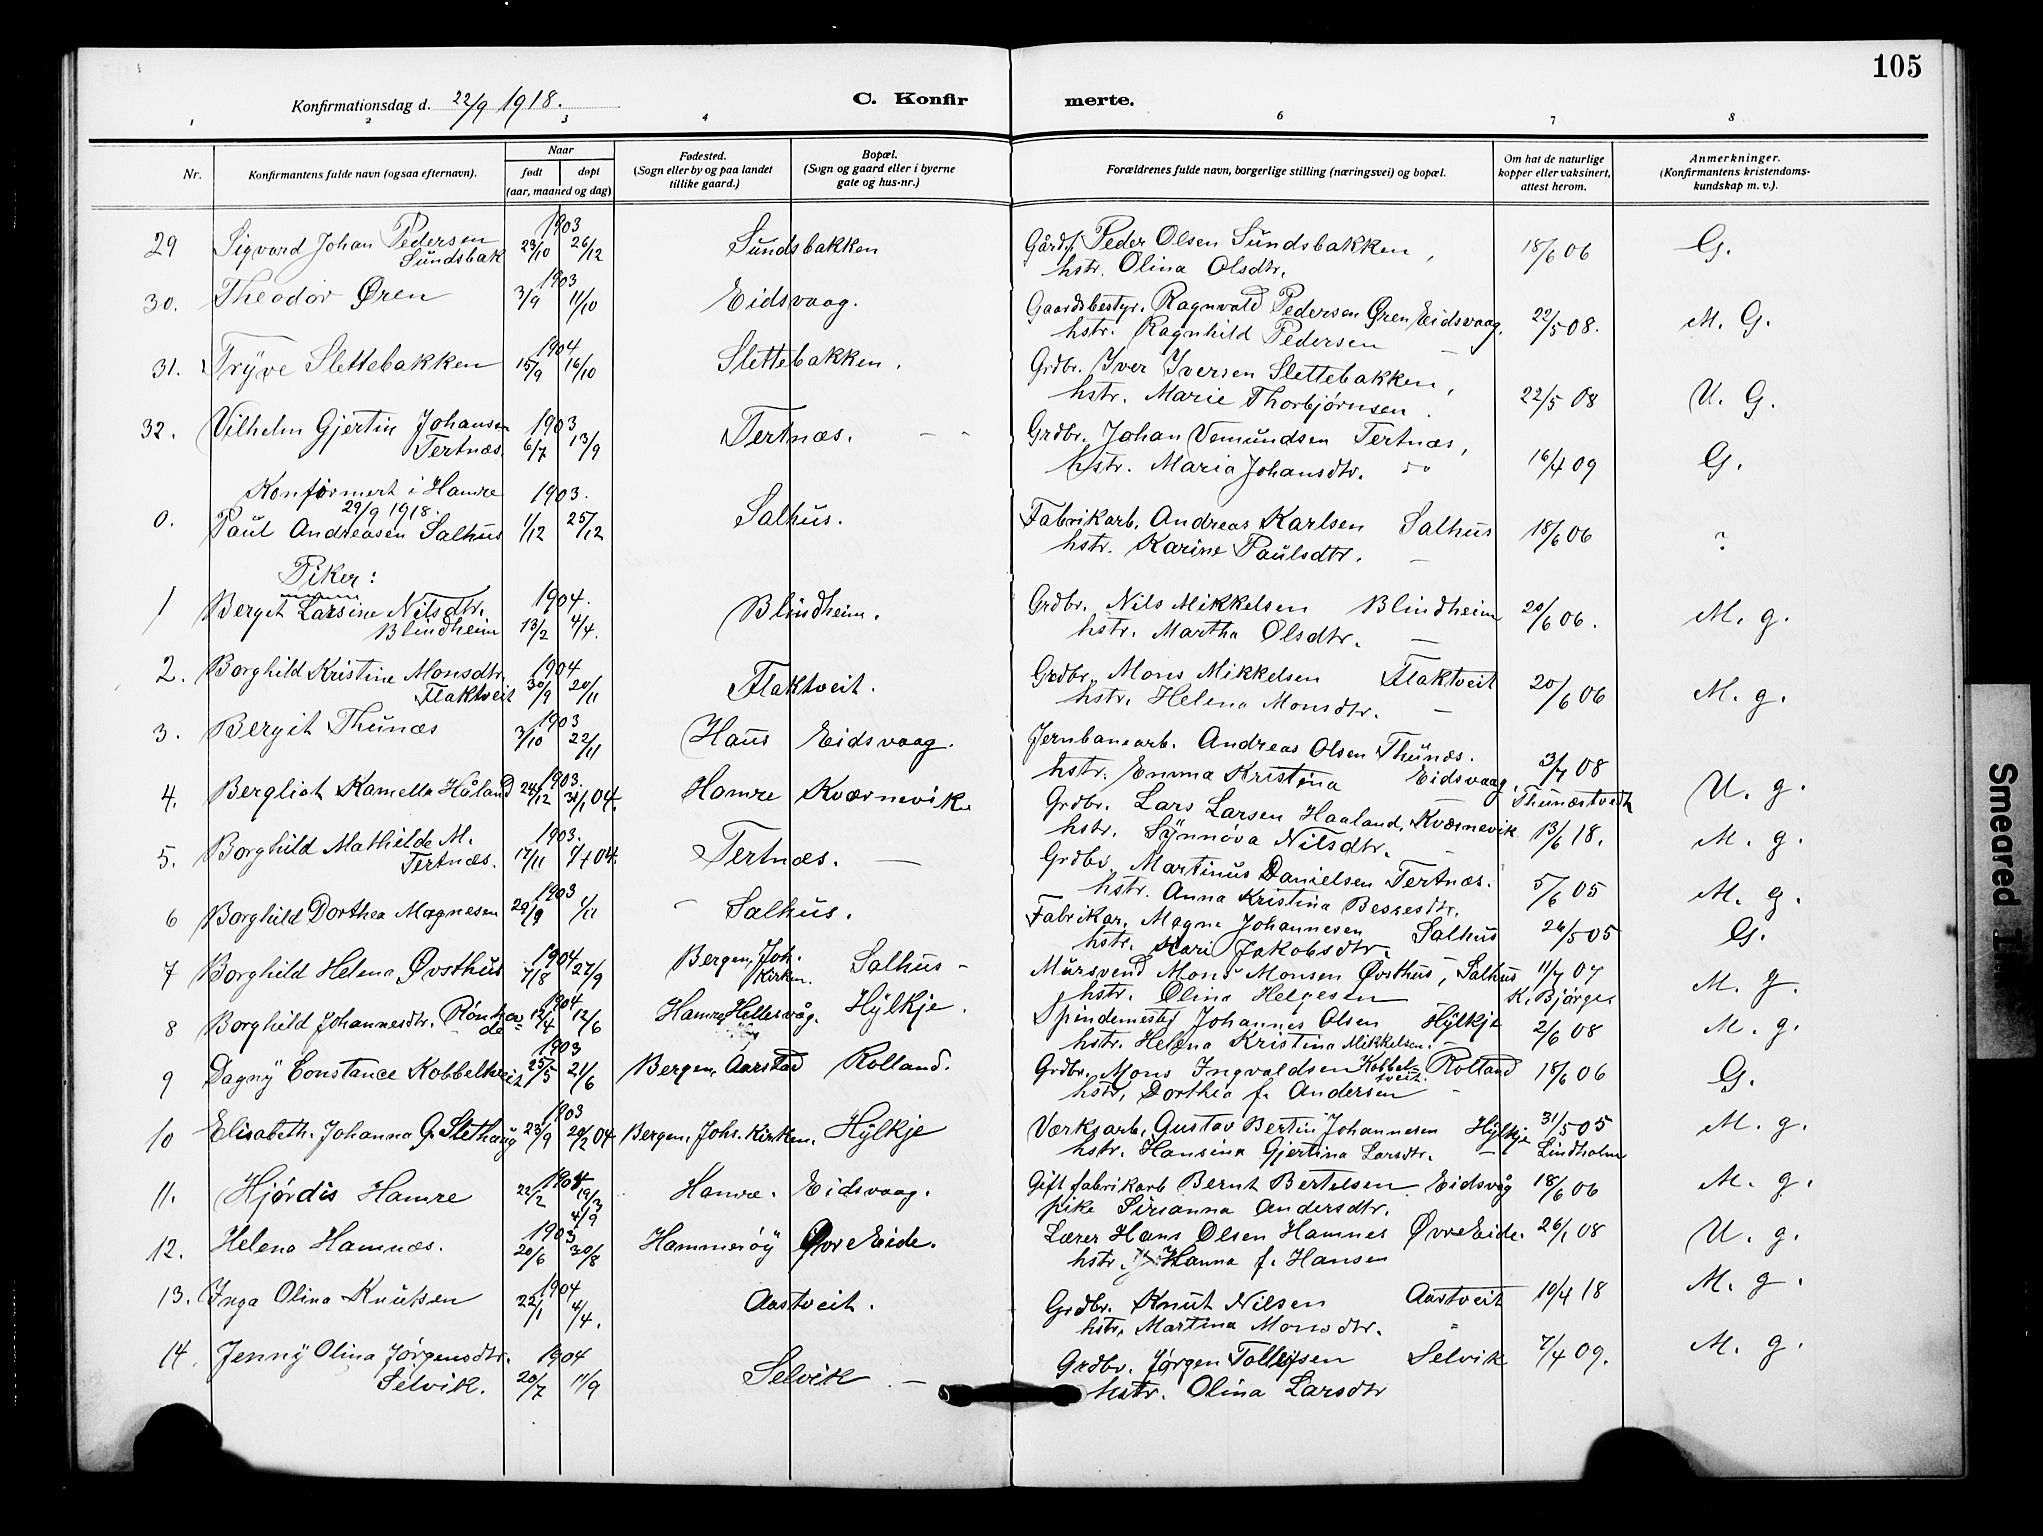 105
Konfirmationsdag d. 22/9 1918.
C. Konfir merte.
1 2 3 4 6 7 8
Nr.
Konfirmantens fulde navn (ogsaa efternavn).
Naar
født
døpt
(aar, maaned og dag)
Fødested.
(Sogn eller by og paa landet
tillike gaard.)
Bopæl.
(Sogn og gaard eller i byerne
gate og hus-nr.)
Forældrenes fulde navn, borgerlige stilling (næringsvei) og bopæl.
Om hat de naturlige
kopper eller vaksinert,
attest herom.
Anmerkninger.
(Konfirmantens kristendoms-
kundskap m. v.).
29 Sigvard Johan Pedersen 1903 Sundsbakken Gårdf. Peder Olsen Sundsbakken, 18/6 06 G.
Sundsbak 23/10 26/12 hstr. Olina Olsdtr.
30. Theodor Øren 1903 3/9 11/10 Eidsvaag. Gaardsbestyr. Ragnvald Pedersen Øren Eidsvaag. 22/5 08. M. G.
hstr. Ragnhild Pedersen —
31. Tryve Slettebakken 1904 15/9 16/10 Slettebakken. Grdbr. Iver Iversen Slettebakken, 22/5 08 U. G.
hstr. Marie Thorbjørnsen.
32. Vilhelm Gjertin Johansen 1903 Tertnæs. Grdbr. Johan Vemundsen Tertnæs, 16/4 09 G.
Tertnæs. 6/7 13/9 hstr. Maria Johansdtr. do
Konfirmert i Hamre 1903.
29/9 1918.
0. Paul Andreasen Salhus 1/12 25/12 Salhus. Fabrikarb. Andreas Karlsen Salhus 18/6 06 ?
hstr. Karine Paulsdtr. —
Piker:
1 Berget Larsine Nilsdtr. 1904. Blindheim. Grdbr. Nils Mikkelsen Blindheim 20/6 06. M. g.
Blindheim 13/2 4/4. hstr. Martha Olsdtr. —
2. Borghild Kristine Monsdtr. 1904 Flaktveit. Grdbr. Mons Mikkelsen Flaktveit 20/6 06 M. g.
Flaktveit 30/9 20/11 hstr. Helena Monsdtr. —
3. Bergit Thunæs 1903 3/10 22/11 Haus Eidsvaag. Jernbanearb. Andreas Olsen Thunæs. 3/7 08 U. g.
hstr. Emma Kristina Eidsvaag. Thunæstvedt
4. Bergliot Kamella Håland 1903. 24/12 31/1 04. Hamre Kværnevik. Grdbr. Lars Larsen Haaland, Kværnevik 13/6 18. M. g.
hstr. Synnøva Nilsdtr. —
5. Borghild Mathilde M. 1903. Tertnæs. — Grdbr. Martinus Danielsen Tertnæs. 5/6 05 M. g.
Tertnæs. 17/11 04. hstr. Anna Kristina
6 Borghild Dorthea Magnesen 1903 20/9 1/11 Salhus. Fabrikar. Magne Johannesen Salhus 26/5 05 G.
hstr. Kari Jakobsdtr.
7 Borghild Helena Øvsthus 1904 7/8 27/9 Bergen, Joh. Kirken. Salhus Mursvend Mons Monsen Øvsthus, Salhus 11/7 07 M. g.
hstr. Olina Helgesen K. Bjørge.
8 Borghild Johannesdtr. 1904 12/4 12/6 Hamre Hellesvåg. Hylkje. Spindemester Johannes Olsen Hylkje 2/6 08 M. g.
hstr. Helena Kristina Mikkelsen. —
9 Dagny Constance Kobbeltveit 1903 25/5 21/6 Bergen, Aarstad Rolland. Grdbr. Mons Ingvaldsen Kobbel- Rolland 18/6 06 G.
tveit.
hstr. Dorthea f. Andersen —
10 Elisabeth Johanna G. Slethaug 1903 23/9 20/2 04 Bergen, Johs. Kirken. Hylkje Værksarb. Gustav Bertin Johannesen Hylkje 31/5 05 M. g.
hstr. Hansina Gjertina Larsdtr. — Lindholm
11. Hjørdis Hamre 1904 22/2 19/3 Hamre. Eidsvaag. Gift fabrikarb Bernt Bertelsen. Eidsvåg 18/6 06 M. g.
4/9 pike Sirianna Andersdtr.
12. Helena Hamnæs. 1903 20/6 30/8 Hammerøy Øvre Eide. Lærer Hans Olsen Hamnes Øvre Eide. 26/1 08 U. g.
hstr. Hanna f. Hansen
13. Inga Olina Knutsen 1904 22/1 4/4. Aastveit. Grdbr. Knut Nilsen Aastveit 10/4 18 M. g.
hstr. Martina Monsdtr. "
14. Jenny Olina Jørgensdtr. 1904 Selvik — Grdbr. Jørgen Tollefsen Selvik 7/4 09. M. g.
Selvik. 20/7 11/9 hstr. Olina Larsdtr
Smeared